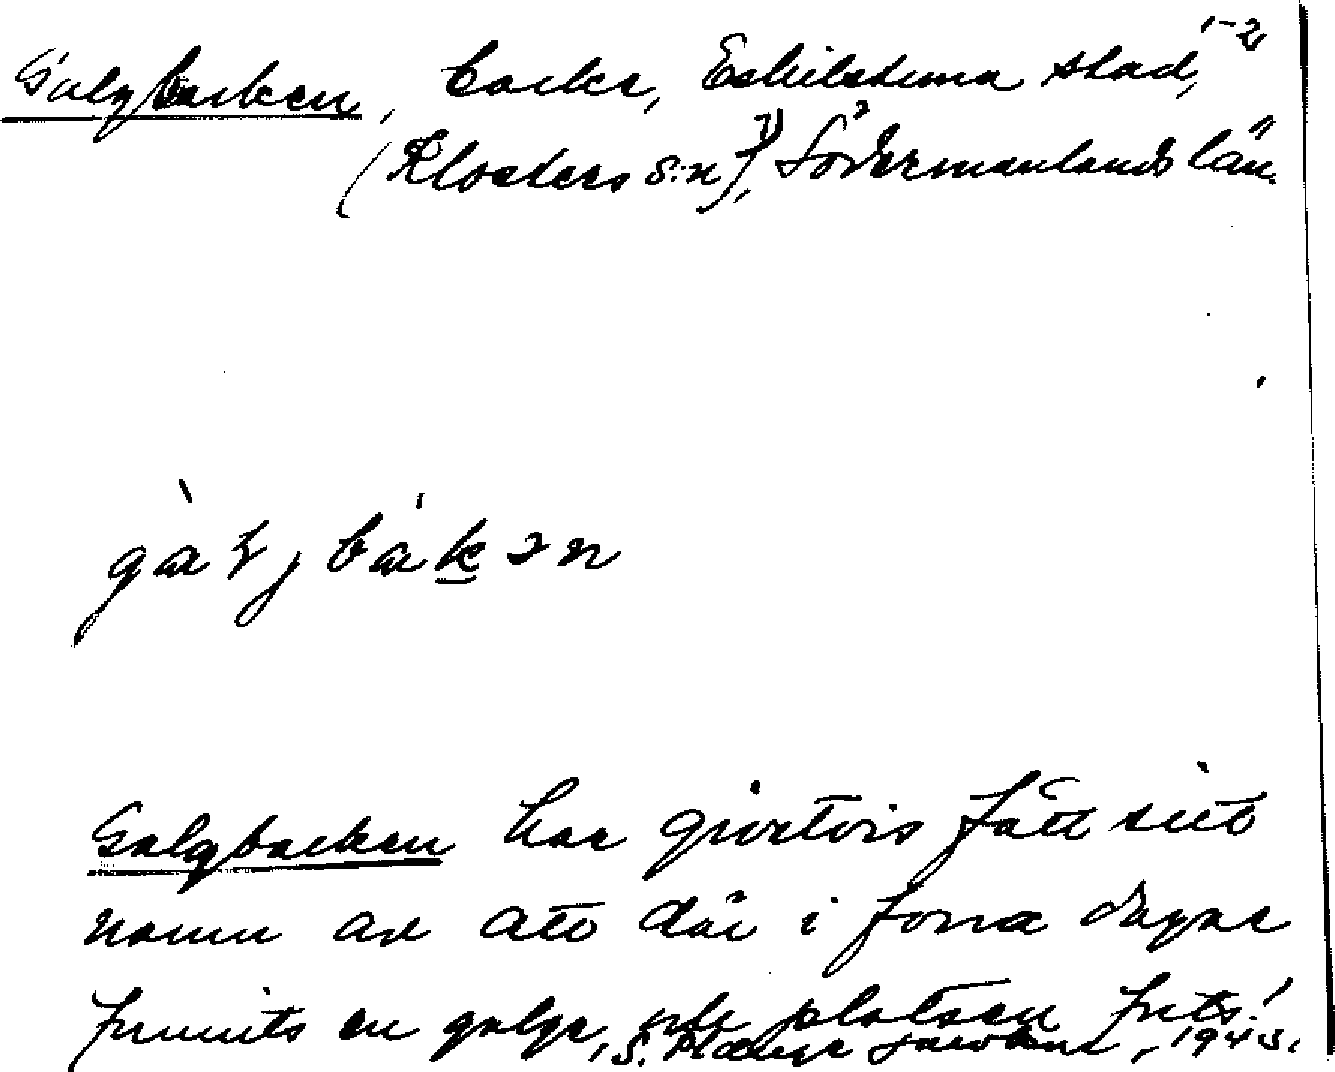 Galgbacken, backe, Eskilstuna stad, 1-2
(Klosters s:n)1), Södermanlands län.
gàɫjbákən
Galgbacken har givetvis fått sitt
namn av att där i forna dagar
funnits en galge, platsen
S. 1945.